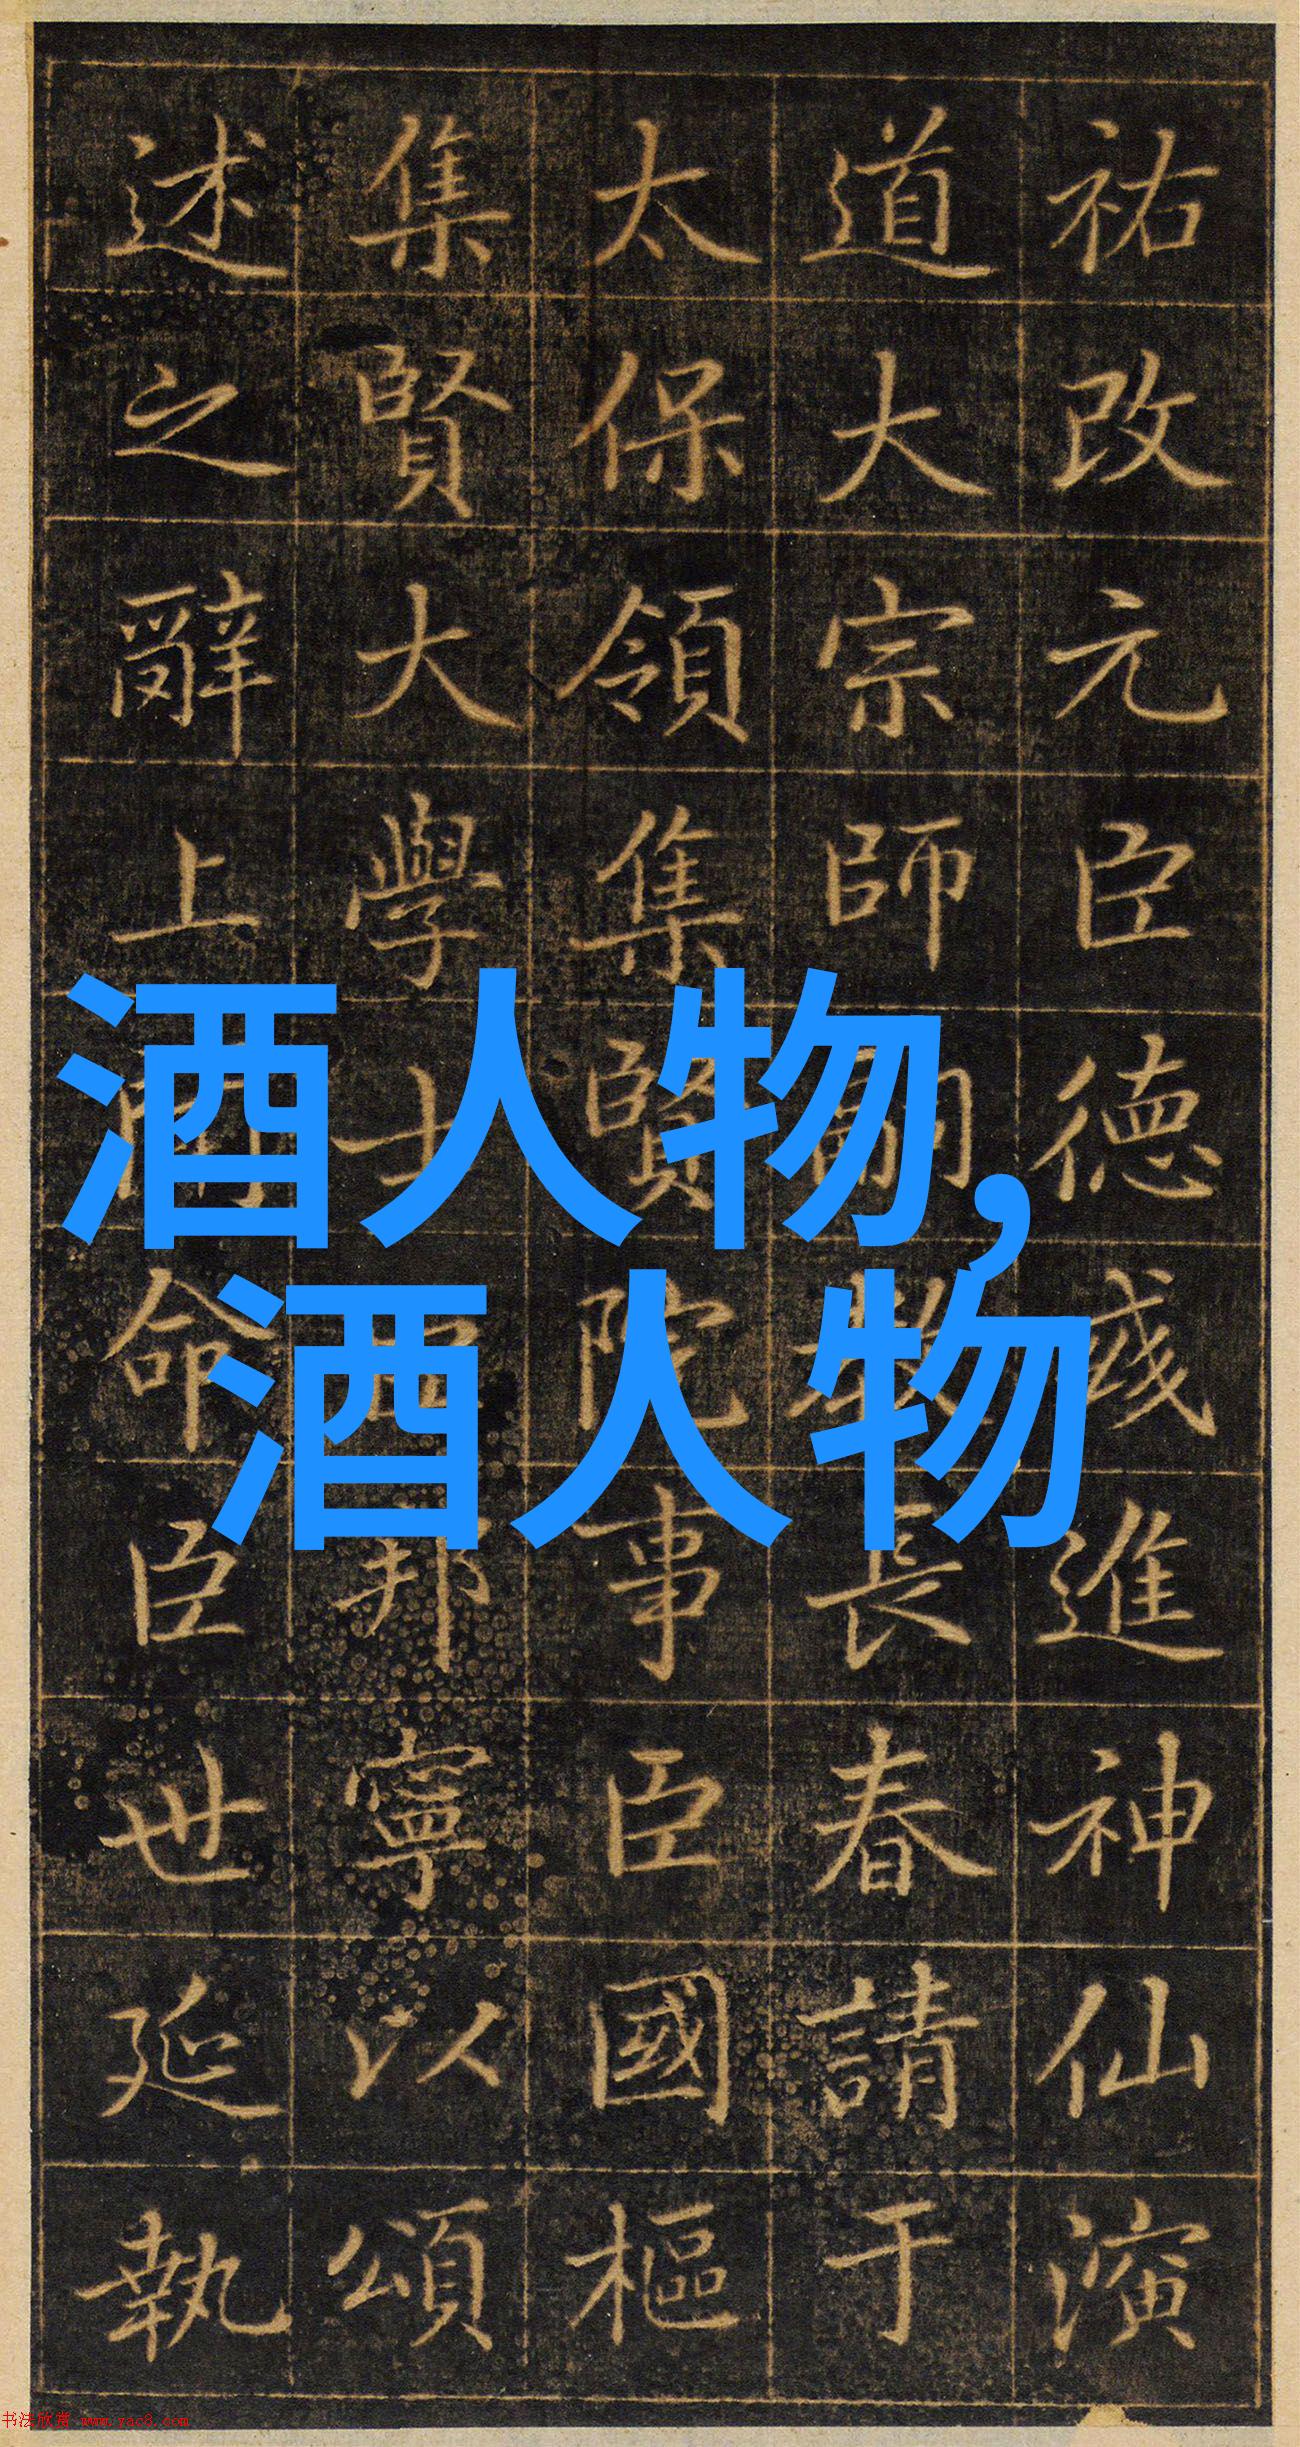 祐改元臣德彧進神仙演
道大宗師嗣教長春請于
太保領集賢院事臣國樞
集賢大學士邦寧以頌
述之辭上命臣世延執
酒人物,
酒人物
书法欣赏 www.yac8.com